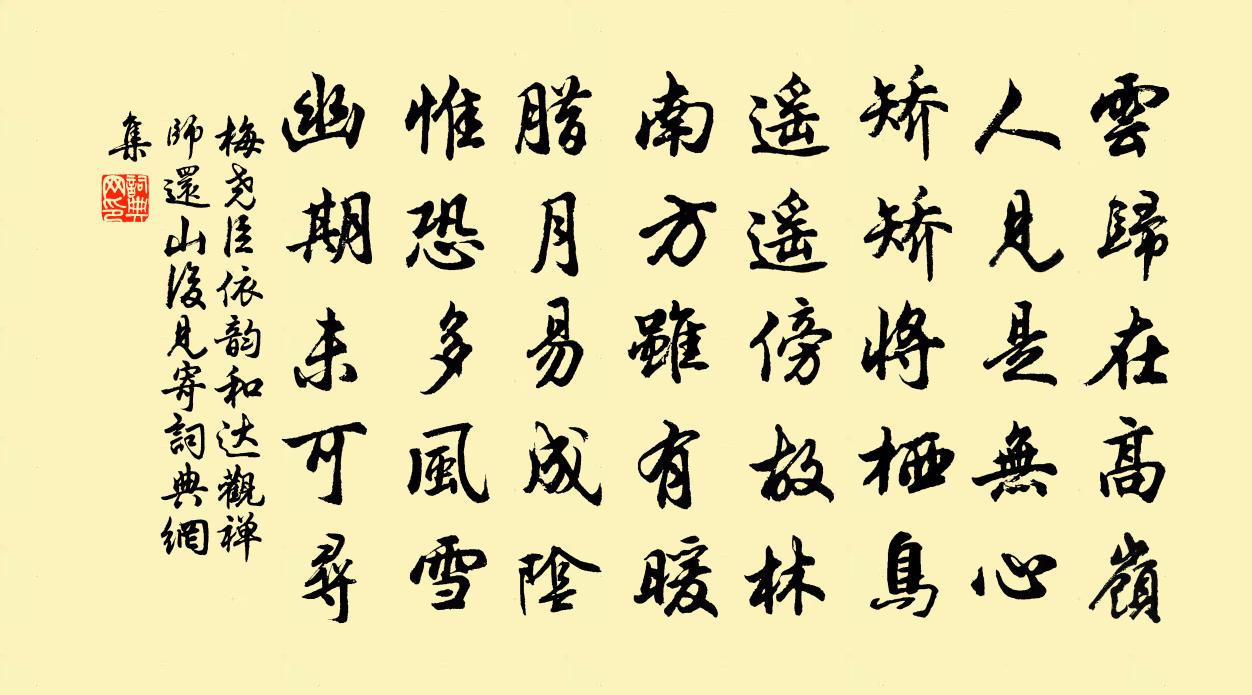 雲歸在高嶺
人見是無心
矯矯將栖鳥
遥遥傍故林
南方雖有暖
腊月易成陰
惟恐多風雪
幽期未可尋
梅尧臣依韵和达觀禅
師還山後見寄詞典網
集
詞典网印